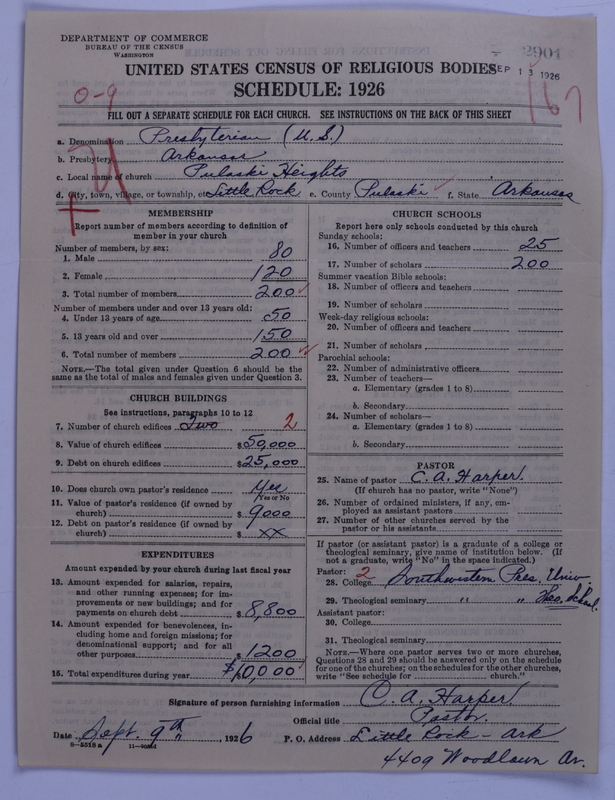 DEPARTMENT OF COMMERCE
BUREAU OF THE CENSUS
WASHINGTON
2901
SEP 13 1926
UNITED STATES CENSUS OF RELIGIOUS BODIES
SCHEDULE: 1926
0-9
167
FILL OUT A SEPARATE SCHEDULE FOR EACH CHURCH. SEE INSTRUCTIONS ON THE BACK OF THIS SHEET
a. Denomination Presbyterian (U.S.)
b. Presbytery Arkansas
c. Local name of church Pulaski Heights
d. City, town, village, or township, etc. Little Rock e. County Pulaski f. State Arkansas
MEMBERSHIP
Report number of members according to definition of member in your church
Number of members, by sex:
1. Male 80
2. Female 120
3. Total number of members 200
Number of members under and over 13 years old:
4. Under 13 years of age 50
5. 13 years old and over 150
6. Total number of members 200
NOTE.—The total given under Question 6 should be the same as the total of males and females given under Question 3.
CHURCH BUILDINGS
See instructions, paragraphs 10 to 12
7. Number of church edifices Two 2
8. Value of church edifices $50,000
9. Debt on church edifices $25,000
10. Does church own pastor's residence Yes
Yes or No
11. Value of pastor's residence (if owned by church) $9000
12. Debt on pastor's residence (if owned by church) $ xx
EXPENDITURES
Amount expended by your church during last fiscal year
13. Amount expended for salaries, repairs, and other running expenses; for improvements or new buildings; and for payments on church debt $8,800
14. Amount expended for benevolences, including home and foreign missions; for denominational support; and for all other purposes $1200
15. Total expenditures during year $10,000
CHURCH SCHOOLS
Report here only schools conducted by this church
Sunday schools:
16. Number of officers and teachers 25
17. Number of scholars 200
Summer vacation Bible schools:
18. Number of officers and teachers
19. Number of scholars
Week-day religious schools:
20. Number of officers and teachers
21. Number of scholars
Parochial schools:
22. Number of administrative officers
23. Number of teachers—
a. Elementary (grades 1 to 8)
b. Secondary
24. Number of scholars—
a. Elementary (grades 1 to 8)
b. Secondary
PASTOR
25. Name of pastor C. A. Harper.
(If church has no pastor, write "None")
26. Number of ordained ministers, if any, employed as assistant pastors
27. Number of other churches served by the pastor or his assistants
If pastor (or assistant pastor) is a graduate of a college or theological seminary, give name of institution below. (If not a graduate, write "No" in the space indicated.)
Pastor: 2
28. College Southwestern Pres. Univ.
29. Theological seminary " " Theo. School.
Assistant pastor:
30. College
31. Theological seminary
NOTE.—Where one pastor serves two or more churches, Questions 28 and 29 should be answered only on the schedule for one of the churches; on the schedules for the other churches, write "See schedule for ........ church."
Signature of person furnishing information C. A. Harper.
Official title Pastor.
Date Sept. 9th, 1926 P. O. Address Little Rock - Ark
4409 Woodlawn Av.